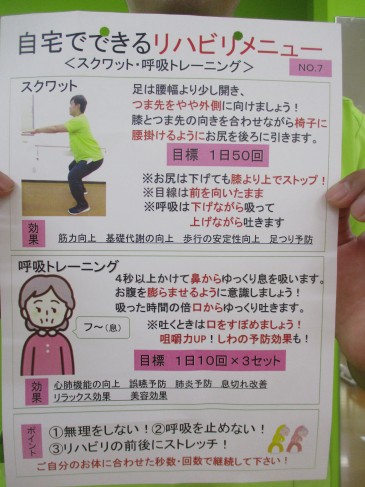 自宅でできるリハビリメニュー
＜スクワット・呼吸トレーニング＞
NO.7
スクワット
足は腰幅より少し開き、
つま先をやや外側に向けましょう！
膝とつま先の向きを合わせながら椅子に
腰掛けるようにお尻を後ろに引きます。
目標 1日50回
※お尻は下げても膝より上でストップ！
※目線は前を向いたまま
※呼吸は下げながら吸って
上げながら吐きます
効果
筋力向上 基礎代謝の向上 歩行の安定性向上 足つり予防
呼吸トレーニング
4秒以上かけて鼻からゆっくり息を吸います。
お腹を膨らませるように意識しましょう！
吸った時間の倍口からゆっくり吐きます。
フ～(息)
※吐くときは口をすぼめましょう！
咀嚼力UP！しわの予防効果も！
目標 1日10回×3セット
効果
心肺機能の向上 誤嚥予防 肺炎予防 息切れ改善
リラックス効果 美容効果
ポイント
①無理をしない！②呼吸を止めない！
③リハビリの前後にストレッチ！
ご自分のお体に合わせた秒数・回数で継続して下さい！